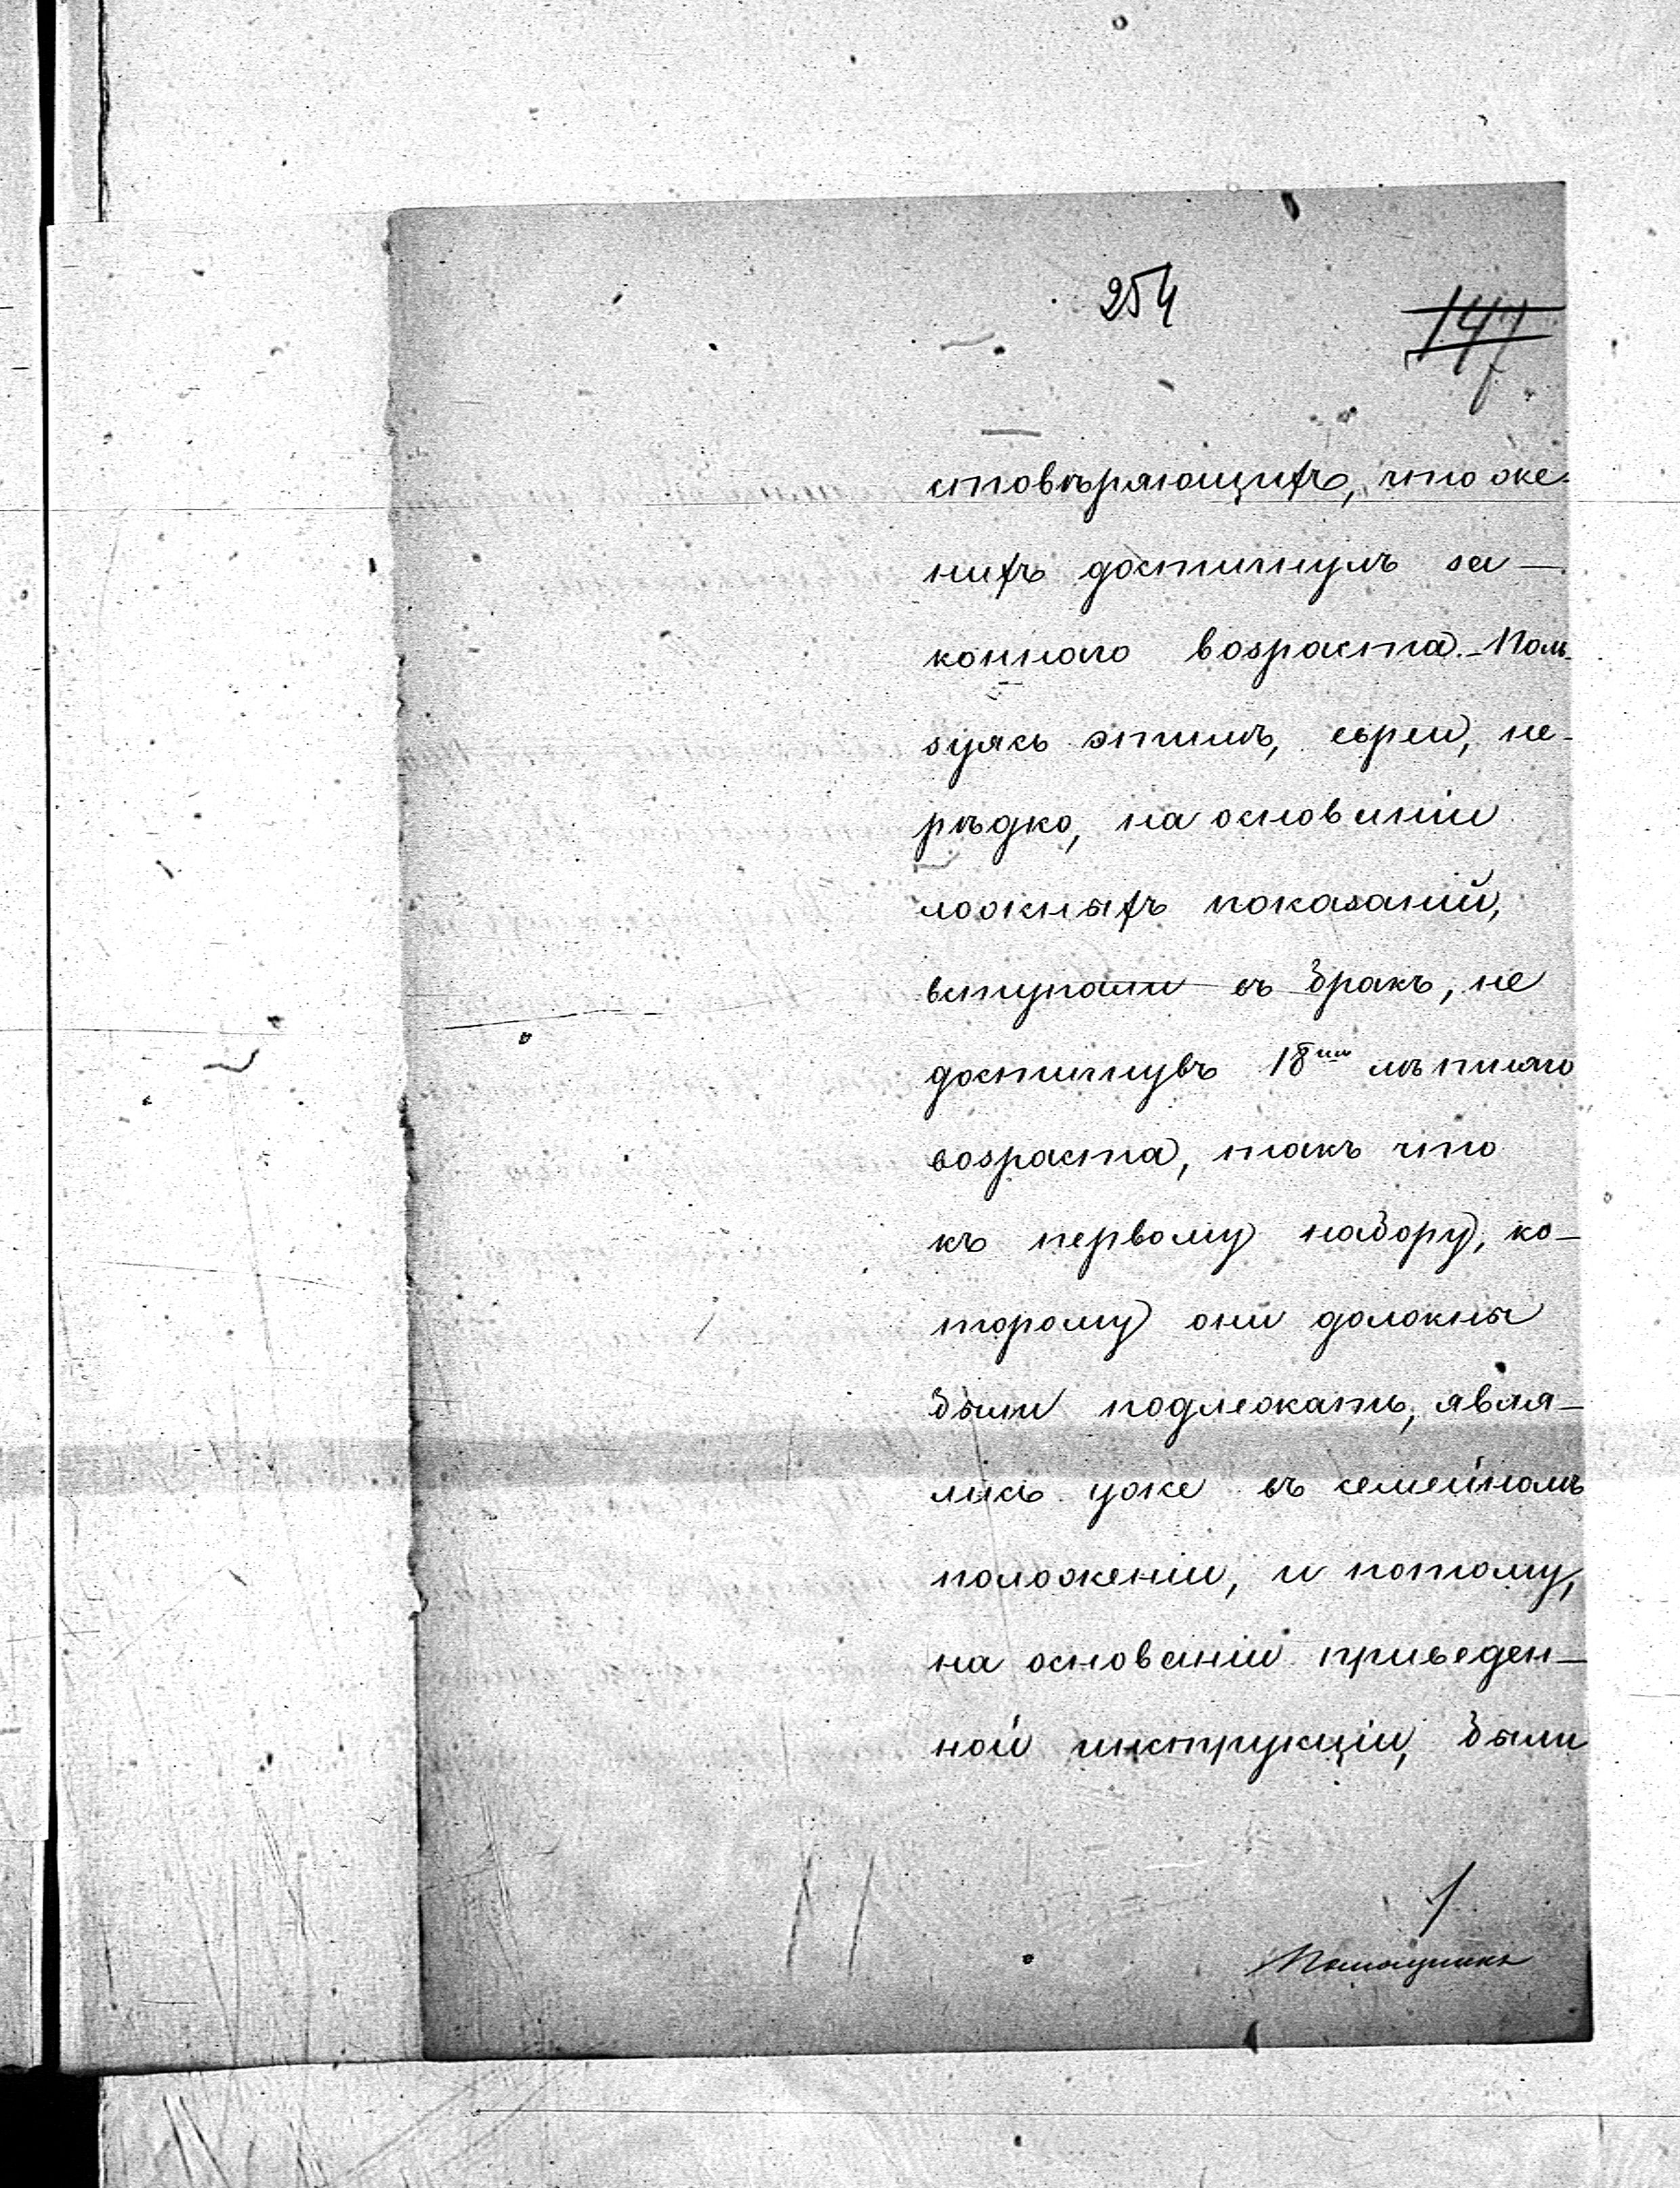 254
147
стовѣряющихъ, что же-
нихъ достигнулъ за-
коннаго возраста.-Поль-
зуясь этимъ, евреи, не-
рѣдко, на основаніи
ложныхъ показаній,
вступали въ бракъ, не
достигнувъ 18ти лѣтняго
возраста, такъ что
къ первому набору, ко-
торому они должны
были подлежать, явля-
лись уже въ семейномъ
положеніи, и потому,
на основаніи приведен-
ной инструкціи, были
Помощникъ